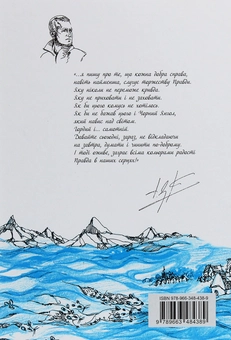 "...я пишу про те, що кожна добра справа,
навіть найменша, служе торжеству Правди.
Яку ніколи не переможе кривда.
Яку не приховати і не заховати.
Як би цього комусь не хотілось.
Як би не бажав цього і Чорний Янгол,
який навис над світом.
Гордий і... самотній.
Давайте сьогодні, зараз, не відкладаючи
на завтра, думати і чинити по-доброму.
І тоді оживе, заграє всіма кольорами радості
Правда в наших серцях!"
ISBN 978-966-348-438-9
9789663484389